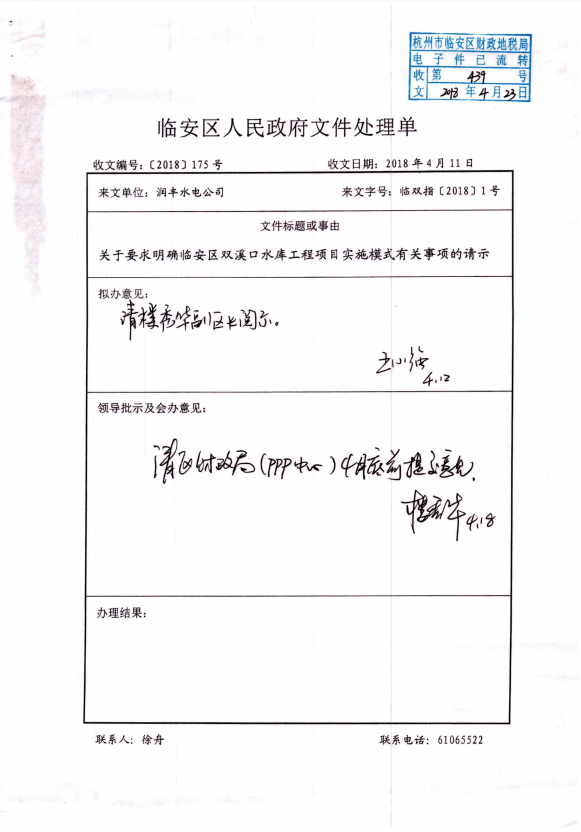 杭州市临安区财政地税局
电子件已流转
收 第 439 号
文 2018年4月23日
临安区人民政府文件处理单
收文编号：〔2018〕175号 收文日期：2018年4月11日
来文单位：润丰水电公司 来文字号：临双指〔2018〕1号
文件标题或事由
关于要求明确临安区双溪口水库工程项目实施模式有关事项的请示
拟办意见：
请楼秀华副区长阅示。
王小强
4.12
领导批示及会办意见：
请区财政局（PPP中心）4月底前提交意见.
楼秀华 4.18
办理结果：
联系人：徐舟 联系电话：61065522